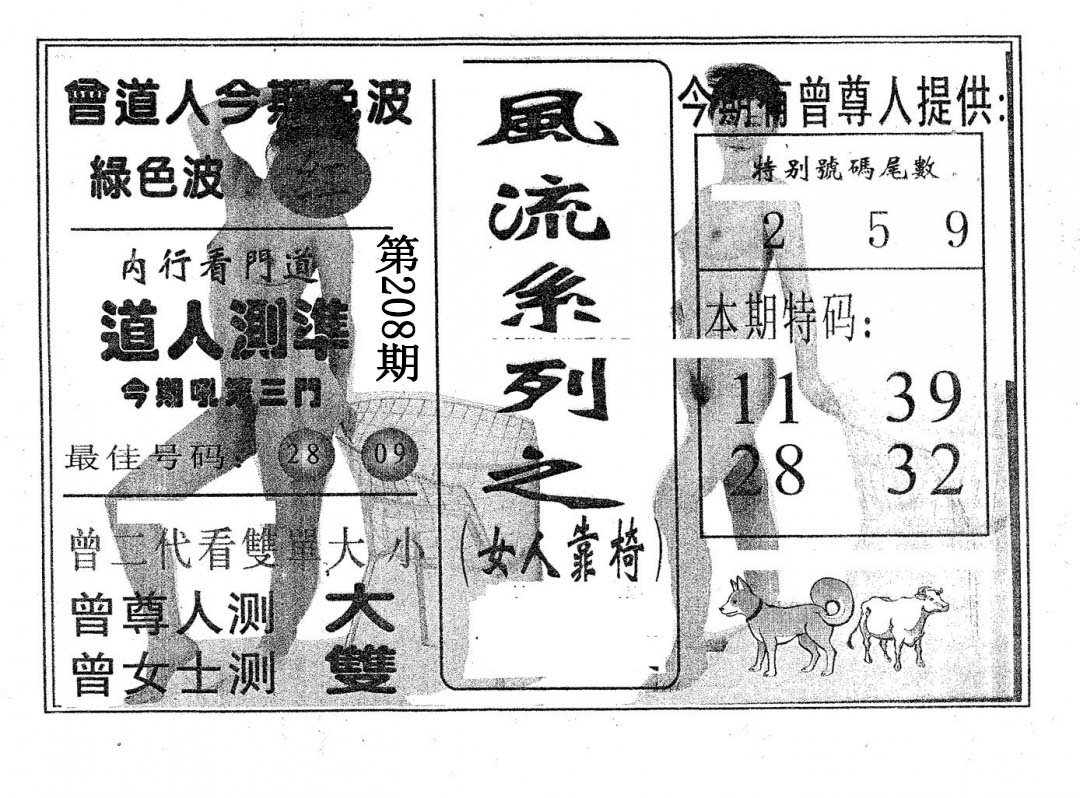 曾道人今期色波
綠色波
内行看門道
道人測準
今期吼准三門
最佳号码:
28 09
曾二代看雙單大小
曾尊人测 大
曾女士测 雙
第208期
風流系列之
(女人靠椅)
今期有曾尊人提供:
特别號碼尾數
2 5 9
本期特码:
11 39
28 32